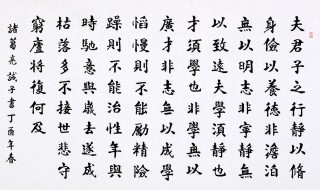 夫君子之行静以脩
身儉以養德非澹泊
無以明志非寧静無
以致遠夫學須静也
才須學也非學無以
廣才非志無以成學
慆慢則不能勵精險
躁則不能治性年與
時馳意與歲去遂成
枯落多不接世悲守
窮廬將復何及
諸葛亮誡子書丁酉年春